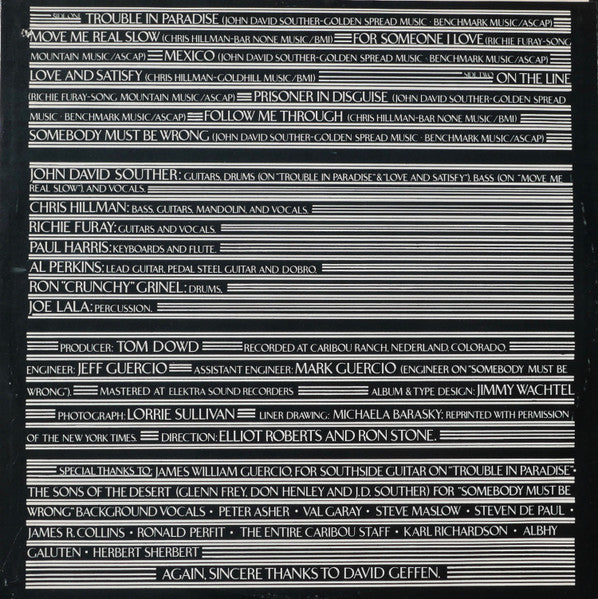 SIDE ONE TROUBLE IN PARADISE (JOHN DAVID SOUTHER-GOLDEN SPREAD MUSIC · BENCHMARK MUSIC/ASCAP)
MOVE ME REAL SLOW (CHRIS HILLMAN-BAR NONE MUSIC/BMI) FOR SOMEONE I LOVE (RICHIE FURAY-SONG
MOUNTAIN MUSIC/ASCAP) MEXICO (JOHN DAVID SOUTHER-GOLDEN SPREAD MUSIC · BENCHMARK MUSIC/ASCAP)
LOVE AND SATISFY (CHRIS HILLMAN-GOLDHILL MUSIC/BMI) SIDE TWO ON THE LINE
(RICHIE FURAY-SONG MOUNTAIN MUSIC/ASCAP) PRISONER IN DISGUISE (JOHN DAVID SOUTHER-GOLDEN SPREAD
MUSIC · BENCHMARK MUSIC/ASCAP) FOLLOW ME THROUGH (CHRIS HILLMAN-BAR NONE MUSIC/BMI)
SOMEBODY MUST BE WRONG (JOHN DAVID SOUTHER-GOLDEN SPREAD MUSIC · BENCHMARK MUSIC/ASCAP)
JOHN DAVID SOUTHER: GUITARS, DRUMS (ON "TROUBLE IN PARADISE" & "LOVE AND SATISFY"), BASS (ON "MOVE ME
REAL SLOW") AND VOCALS.
CHRIS HILLMAN: BASS, GUITARS, MANDOLIN, AND VOCALS.
RICHIE FURAY: GUITARS AND VOCALS.
PAUL HARRIS: KEYBOARDS AND FLUTE.
AL PERKINS: LEAD GUITAR, PEDAL STEEL GUITAR AND DOBRO.
RON "CRUNCHY" GRINEL: DRUMS.
JOE LALA: PERCUSSION.
PRODUCER: TOM DOWD RECORDED AT CARIBOU RANCH, NEDERLAND, COLORADO.
ENGINEER: JEFF GUERCIO ASSISTANT ENGINEER: MARK GUERCIO (ENGINEER ON "SOMEBODY MUST BE
WRONG"). MASTERED AT ELEKTRA SOUND RECORDERS ALBUM & TYPE DESIGN: JIMMY WACHTEL
PHOTOGRAPH: LORRIE SULLIVAN LINER DRAWING: MICHAELA BARASKY; REPRINTED WITH PERMISSION
OF THE NEW YORK TIMES. DIRECTION: ELLIOT ROBERTS AND RON STONE.
SPECIAL THANKS TO: JAMES WILLIAM GUERCIO, FOR SOUTHSIDE GUITAR ON "TROUBLE IN PARADISE" ·
THE SONS OF THE DESERT (GLENN FREY, DON HENLEY AND J.D. SOUTHER) FOR "SOMEBODY MUST BE
WRONG" BACKGROUND VOCALS · PETER ASHER · VAL GARAY · STEVE MASLOW · STEVEN DE PAUL ·
JAMES R. COLLINS · RONALD PERFIT · THE ENTIRE CARIBOU STAFF · KARL RICHARDSON · ALBHY
GALUTEN · HERBERT SHERBERT
AGAIN, SINCERE THANKS TO DAVID GEFFEN.